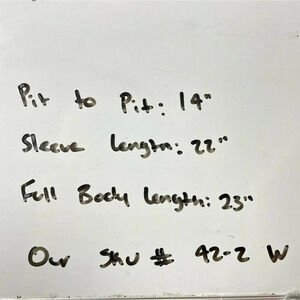 Pit to Pit: 14"
Sleeve Length: 22"
Full Body Length: 23"
Our Sku # 42-2 W